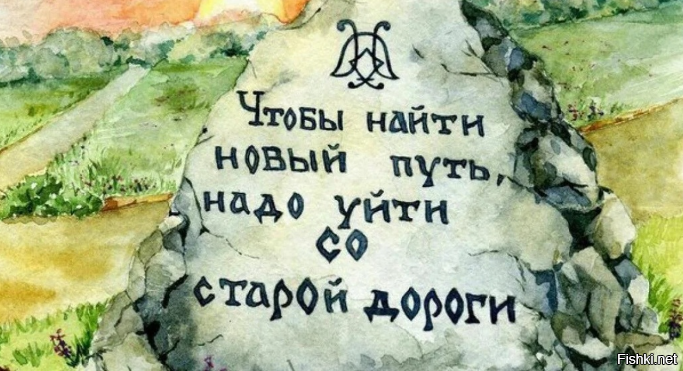 Чтобы найти
новый путь,
надо уйти
со
старой дороги
Fishki.net